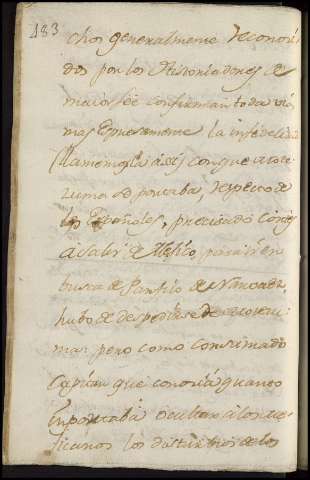 183
chos generalmente reconoci
dos por los Historiadores de
maior fée confirman toda via
mas expresamente la infidelidad
(llamemosla asi) con que Mote
zuma se portaba, respecto de
los Españoles, precisado Cortes
à salir de Mexico, para ir en
busca de Panfilo de Narvaez,
hubo de despedirse de Motezu
ma: pero como consumado
Capitan que conocia quanto
importaba ocultar à los me
xicanos los disturbios de los